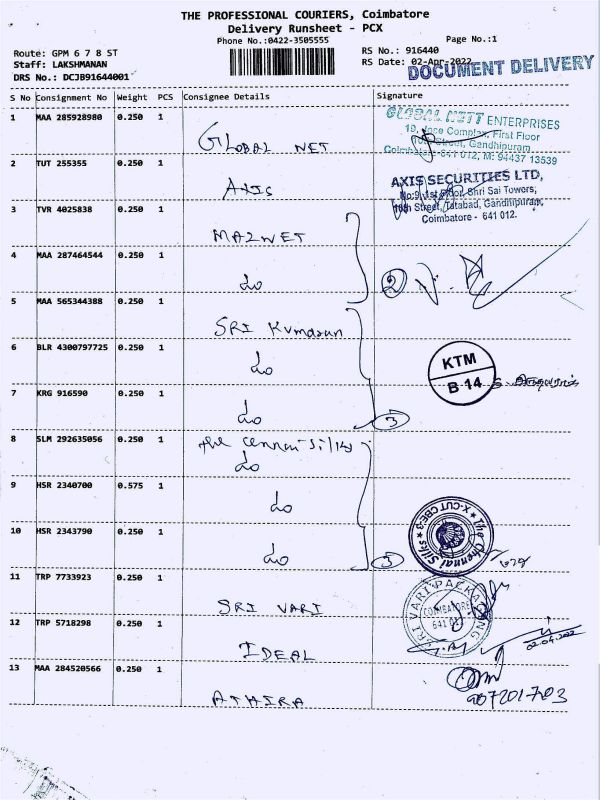 THE PROFESSIONAL COURIERS, Coimbatore
Delivery Runsheet - PCX
Phone No.:0422-3505555
Page No.:1
Route: GPM 6 7 8 ST
RS No.: 916440
Staff: LAKSHMANAN
RS Date: 02-Apr-2022
DRS No.: DCJB91644001
DOCUMENT DELIVERY
S No Consignment No Weight PCS Consignee Details Signature
1 MAA 285928980 0.250 1
GLOBAL NET
GLOBAL NETT ENTERPRISES
First Floor
Street, Gandhipuram
Coimbatore-641 012, M: 94437 13539
2 TUT 255355 0.250 1
AXIS
AXIS SECURITIES LTD,
No:9, 1st Floor, Shri Sai Towers,
Street, Tatabad, Gandhipuram,
Coimbatore - 641 012.
3 TVR 4025838 0.250 1
MAZWET
4 MAA 287464544 0.250 1
do
2
5 MAA 565344388 0.250 1
SRI Kumaran
6 BLR 4300797725 0.250 1
do
KTM
B 14
7 KRG 916590 0.250 1
do
3
8 SLM 292635056 0.250 1
the Cennai Silks
do
9 HSR 2340700 0.575 1
do
The Chennai Silks
X-CUT CBE-3
10 HSR 2343790 0.250 1
do
11 TRP 7733923 0.250 1
SRI VARI
SRI VARI PACKAGING
COIMBATORE
12 TRP 5718298 0.250 1
IDEAL
02.04.2022
13 MAA 284520566 0.250 1
ATHIRA